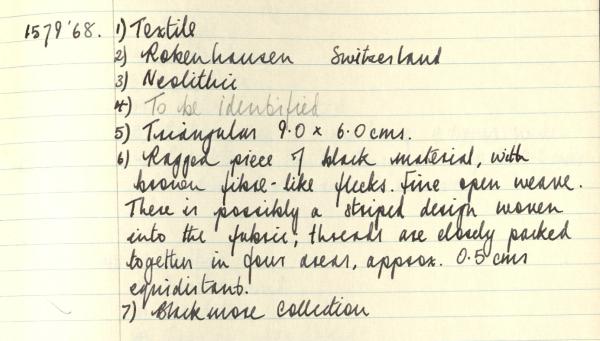 1579'68. 1) Textile
2) Robenhausen Switzerland
3) Neolithic
4) To be identified
5) Triangular 9.0 x 6.0 cms.
6) Ragged piece of black material, with
brown fibre-like flecks. Fine open weave.
There is possibly a striped design woven
into the fabric; threads are closely packed
together in four areas, approx. 0.5 cms
equidistant.
7) Blackmore Collection